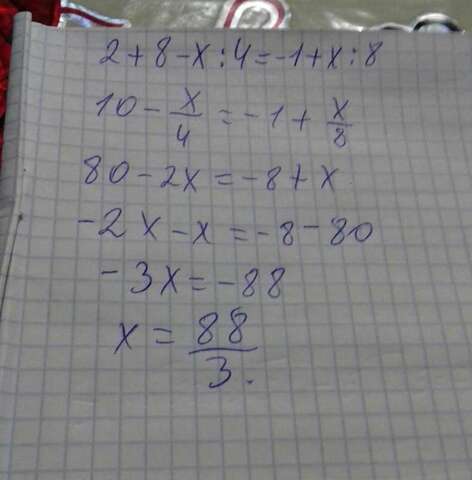 2+8-x:4=-1+x:8
10-x/4=-1+x/8
80-2x=-8+x
-2x-x=-8-80
-3x=-88
x=88/3.